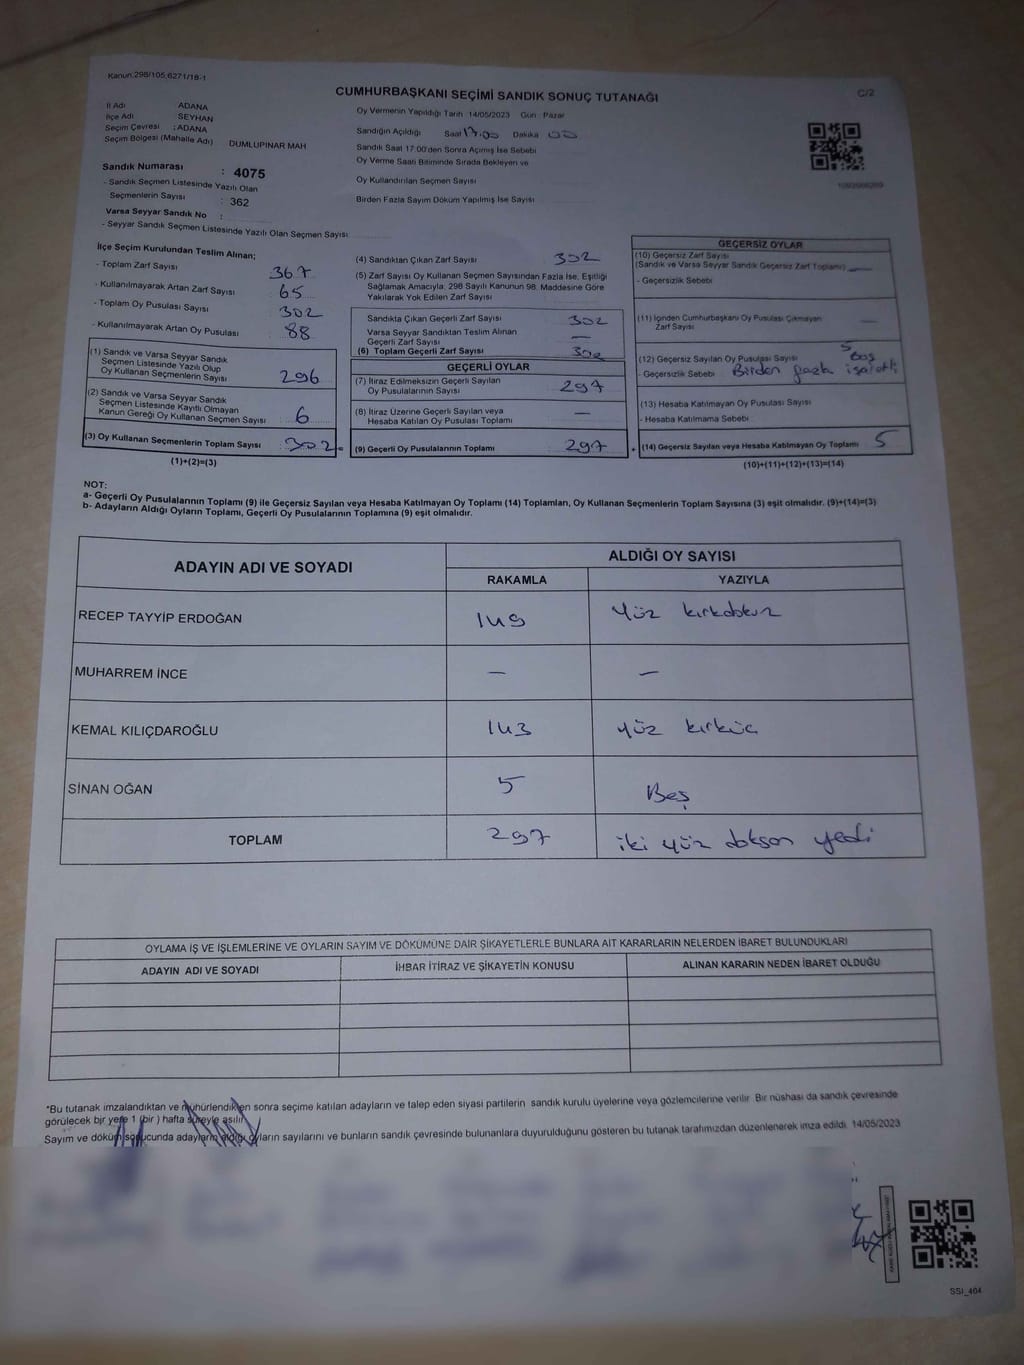 Kanun:298/105,6271/18-1
CUMHURBAŞKANI SEÇİMİ SANDIK SONUÇ TUTANAĞI
C/2
İl Adı ADANA
İlçe Adı SEYHAN
Seçim Çevresi : ADANA
Seçim Bölgesi (Mahalle Adı) DUMLUPINAR MAH
Sandık Numarası : 4075
- Sandık Seçmen Listesinde Yazılı Olan
Seçmenlerin Sayısı : 362
Varsa Seyyar Sandık No :
- Seyyar Sandık Seçmen Listesinde Yazılı Olan Seçmen Sayısı
Oy Vermenin Yapıldığı Tarih : 14/05/2023 Gün : Pazar
Sandığın Açıldığı Saat 17:00 Dakika 00
Sandık Saat 17:00'den Sonra Açımış İse Sebebi
Oy Verme Saati Bitiminde Sırada Bekleyen ve
Oy Kullandırılan Seçmen Sayısı
Birden Fazla Sayım Döküm Yapılmış İse Sayısı
İlçe Seçim Kurulundan Teslim Alınan;
- Toplam Zarf Sayısı 367
- Kullanılmayarak Artan Zarf Sayısı 65
- Toplam Oy Pusulası Sayısı 302
- Kullanılmayarak Artan Oy Pusulası 88
(1) Sandık ve Varsa Seyyar Sandık
Seçmen Listesinde Yazılı Olup
Oy Kullanan Seçmenlerin Sayısı 296
(2) Sandık ve Varsa Seyyar Sandık
Seçmen Listesinde Kayıtlı Olmayan
Kanun Gereği Oy Kullanan Seçmen Sayısı 6
(3) Oy Kullanan Seçmenlerin Toplam Sayısı 302 =
(1)+(2)=(3)
(4) Sandıktan Çıkan Zarf Sayısı 302
(5) Zarf Sayısı Oy Kullanan Seçmen Sayısından Fazla İse, Eşitliği
Sağlamak Amacıyla, 298 Sayılı Kanunun 98. Maddesine Göre
Yakılarak Yok Edilen Zarf Sayısı
Sandıkta Çıkan Geçerli Zarf Sayısı 302
Varsa Seyyar Sandıktan Teslim Alınan
Geçerli Zarf Sayısı —
(6) Toplam Geçerli Zarf Sayısı 302
GEÇERLİ OYLAR
(7) İtiraz Edilmeksizin Geçerli Sayılan
Oy Pusulasının Sayısı 297
(8) İtiraz Üzerine Geçerli Sayılan veya
Hesaba Katılan Oy Pusulası Toplamı —
(9) Geçerli Oy Pusulalarının Toplamı 297 +
GEÇERSİZ OYLAR
(10) Geçersiz Zarf Sayısı
(Sandık ve Varsa Seyyar Sandık Geçersiz Zarf Toplamı) —
- Geçersizlik Sebebi
(11) İçinden Cumhurbaşkanı Oy Pusulası Çıkmayan
Zarf Sayısı —
(12) Geçersiz Sayılan Oy Pusulası Sayısı 5 Boş
- Geçersizlik Sebebi Birden fazla işaretli
(13) Hesaba Katılmayan Oy Pusulası Sayısı
- Hesaba Katılmama Sebebi
(14) Geçersiz Sayılan veya Hesaba Katılmayan Oy Toplamı 5
(10)+(11)+(12)+(13)=(14)
NOT:
a- Geçerli Oy Pusulalarının Toplamı (9) ile Geçersiz Sayılan veya Hesaba Katılmayan Oy Toplamı (14) Toplamları, Oy Kullanan Seçmenlerin Toplam Sayısına (3) eşit olmalıdır. (9)+(14)=(3)
b- Adayların Aldığı Oyların Toplamı, Geçerli Oy Pusulalarının Toplamına (9) eşit olmalıdır.
ADAYIN ADI VE SOYADI
ALDIĞI OY SAYISI
RAKAMLA YAZIYLA
RECEP TAYYİP ERDOĞAN 149 Yüz kırkdokuz
MUHARREM İNCE — —
KEMAL KILIÇDAROĞLU 143 yüz kırküç
SİNAN OĞAN 5 Beş
TOPLAM 297 iki yüz doksan yedi
OYLAMA İŞ VE İŞLEMLERİNE VE OYLARIN SAYIM VE DÖKÜMÜNE DAİR ŞİKAYETLERLE BUNLARA AİT KARARLARIN NELERDEN İBARET BULUNDUKLARI
ADAYIN ADI VE SOYADI İHBAR İTİRAZ VE ŞİKAYETİN KONUSU ALINAN KARARIN NEDEN İBARET OLDUĞU
*Bu tutanak imzalandıktan ve mühürlendikten sonra seçime katılan adayların ve talep eden siyasi partilerin sandık kurulu üyelerine veya gözlemcilerine verilir. Bir nüshası da sandık çevresinde
görülecek bir yere 1 (bir ) hafta süreyle asılır.
Sayım ve döküm sonucunda adayların aldığı oyların sayılarını ve bunların sandık çevresinde bulunanlara duyurulduğunu gösteren bu tutanak tarafımızdan düzenlenerek imza edildi. 14/05/2023
SSI_404